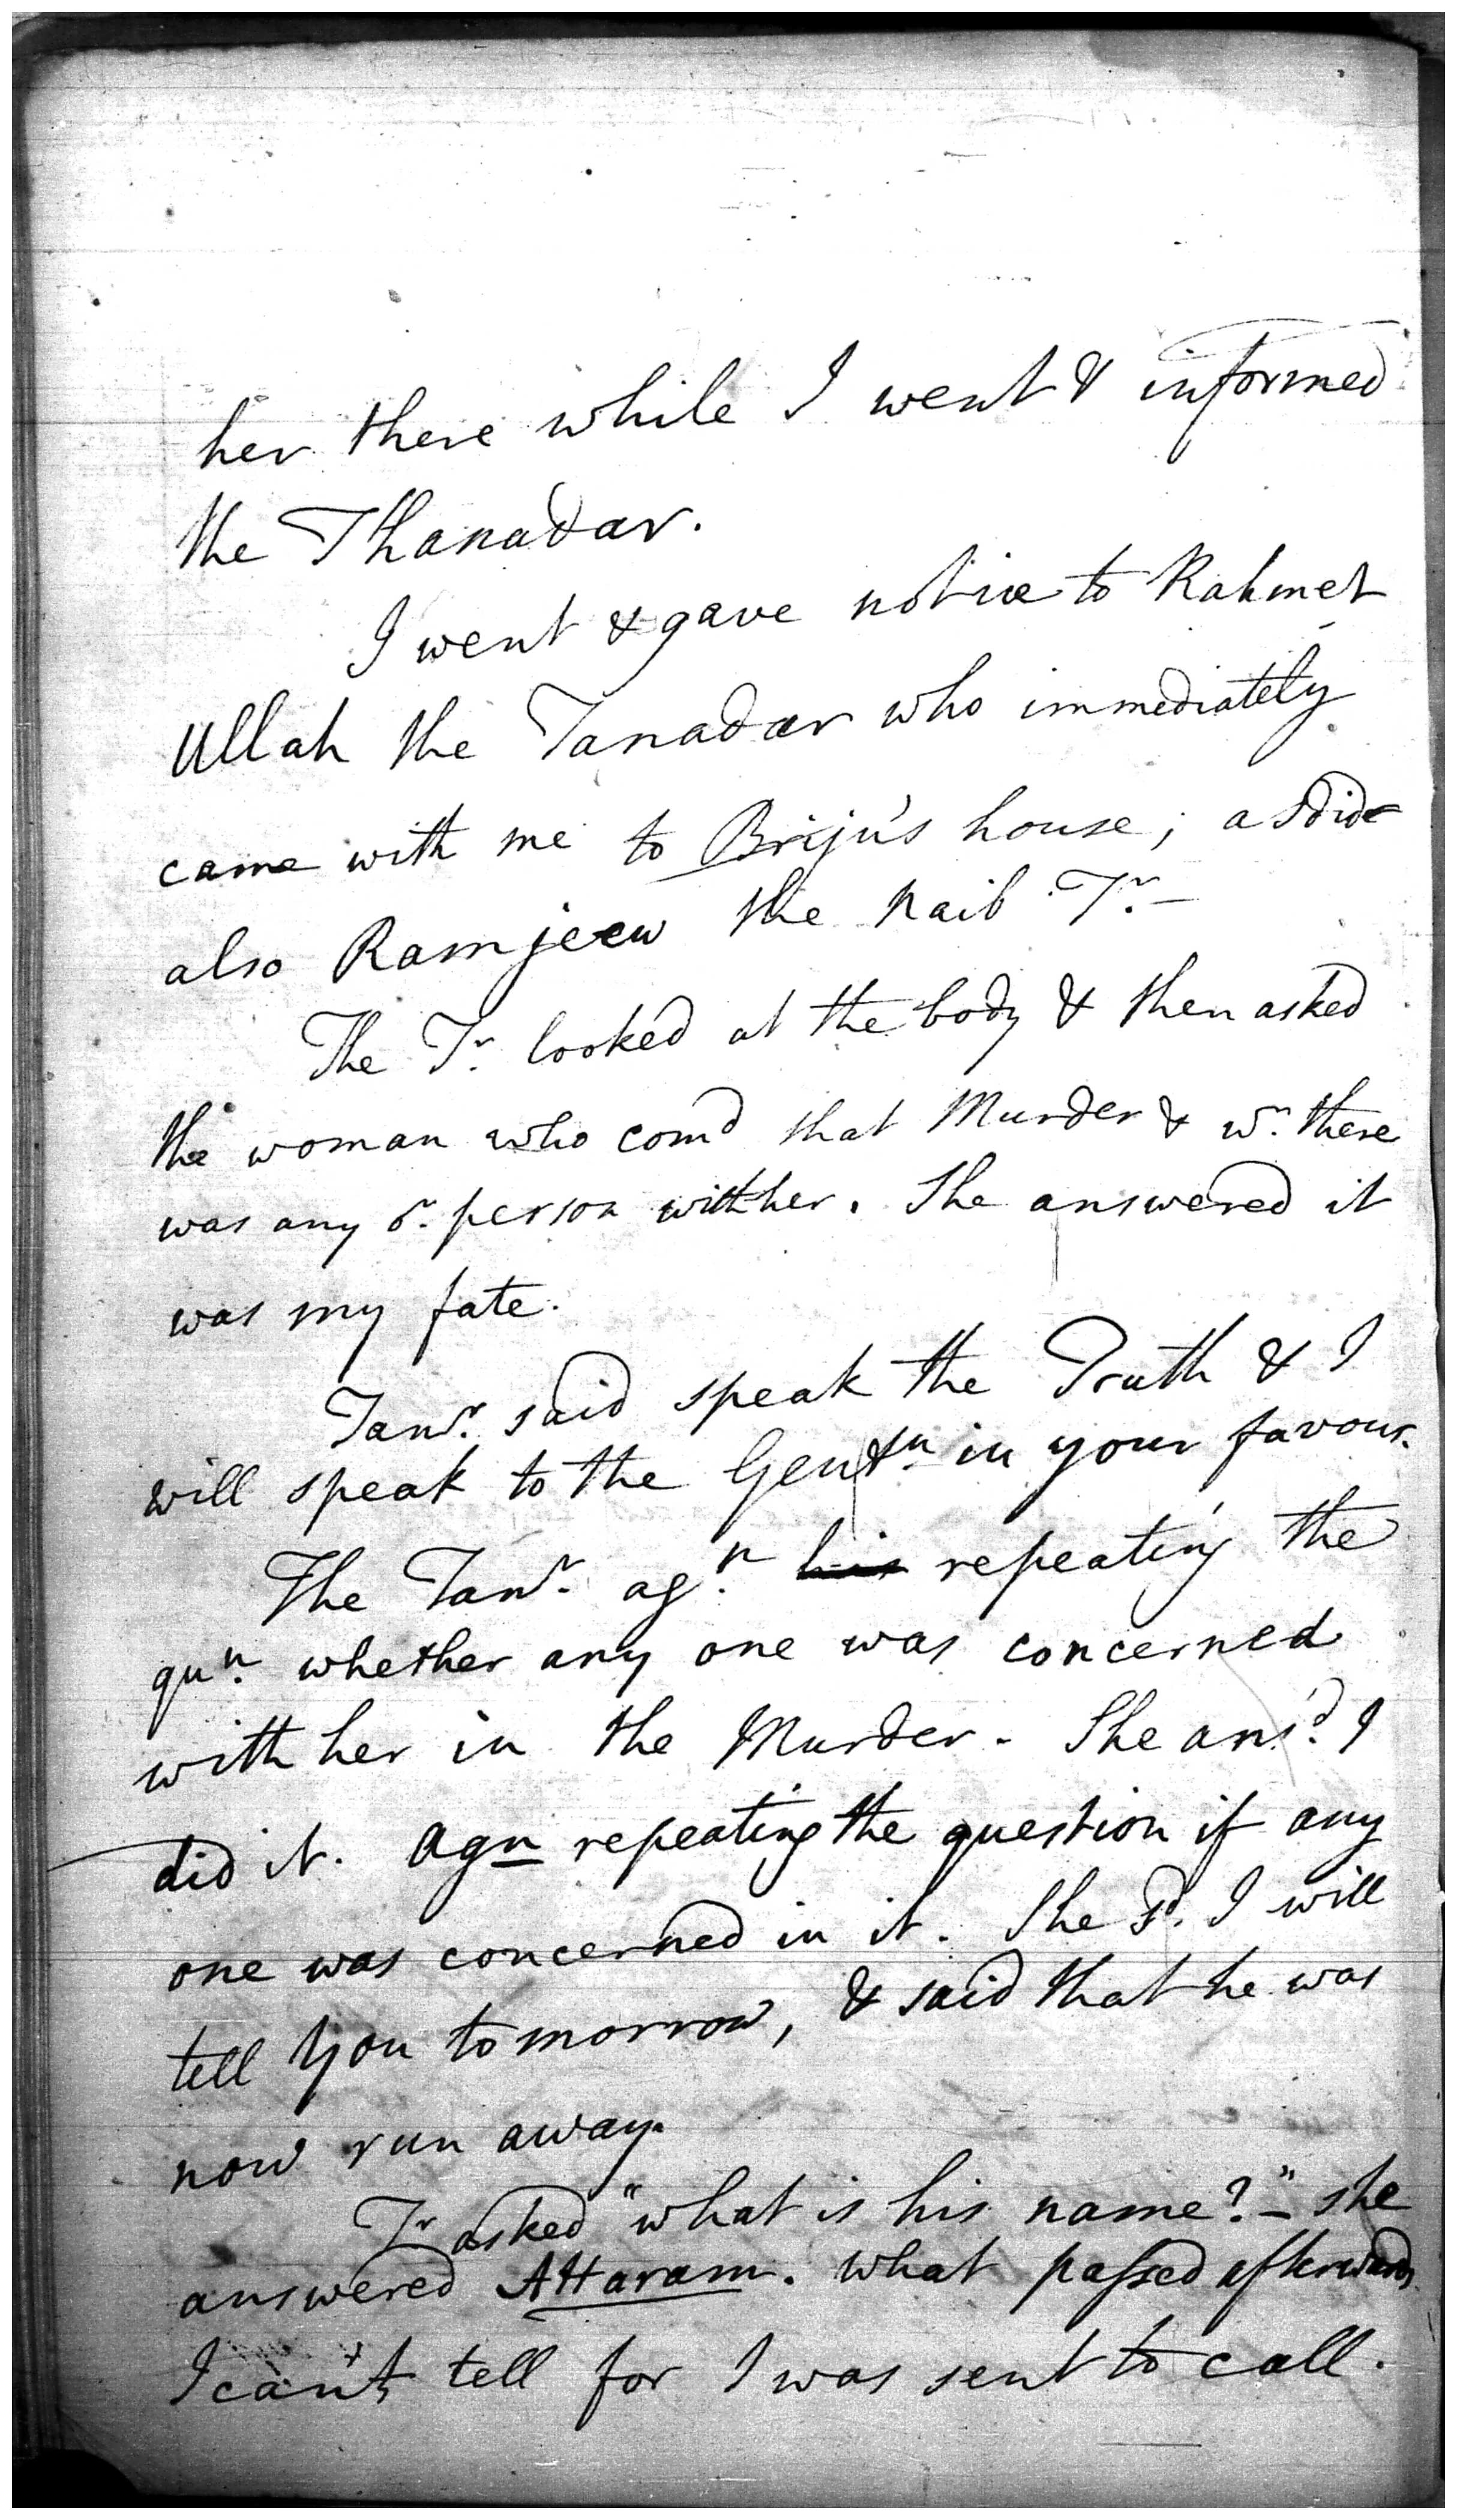 her there while I went & informed
the Thanadar.
I went & gave notice to Rahmet
Ullah the Tanadar who immediately
came with me to Briju's house; as did
also Ramjeew the Naib Tr. —
The Tr. looked at the body & then asked
the woman who comd that Murder & wr. there
was any or. person with her. She answered it
was my fate.
Tanr. said speak the Truth & I
will speak to the Gentn. in your favour.
The Tanr. agn. his repeating the
qun. whether any one was concerned
with her in the Murder. She ansd. I
did it. Agn repeating the question if any
one was concerned in it. She sd. I will
tell you tomorrow, & said that he was
now run away.
Tr asked "what is his name?" - she
answered Attaram. What passed afterwards
I can't tell for I was sent to call.